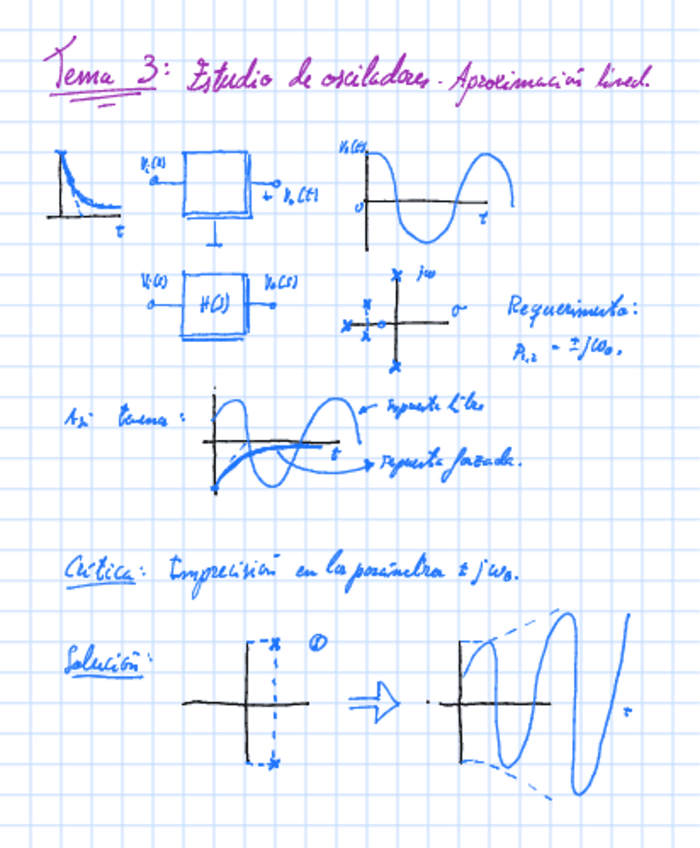 Tema 3: Estudio de osciladores. Aproximación lineal.
Vi(t)
Vo(t)
t
Vo(t)
0
t
Vi(s)
H(s)
Vo(s)
jω
σ
Requerimiento:
P1,2 = ±jω0.
Así tenemos:
respuesta libre
t
respuesta forzada.
Crítica: Imprecisión en los parámetros ± jω0.
Solución:
①
t